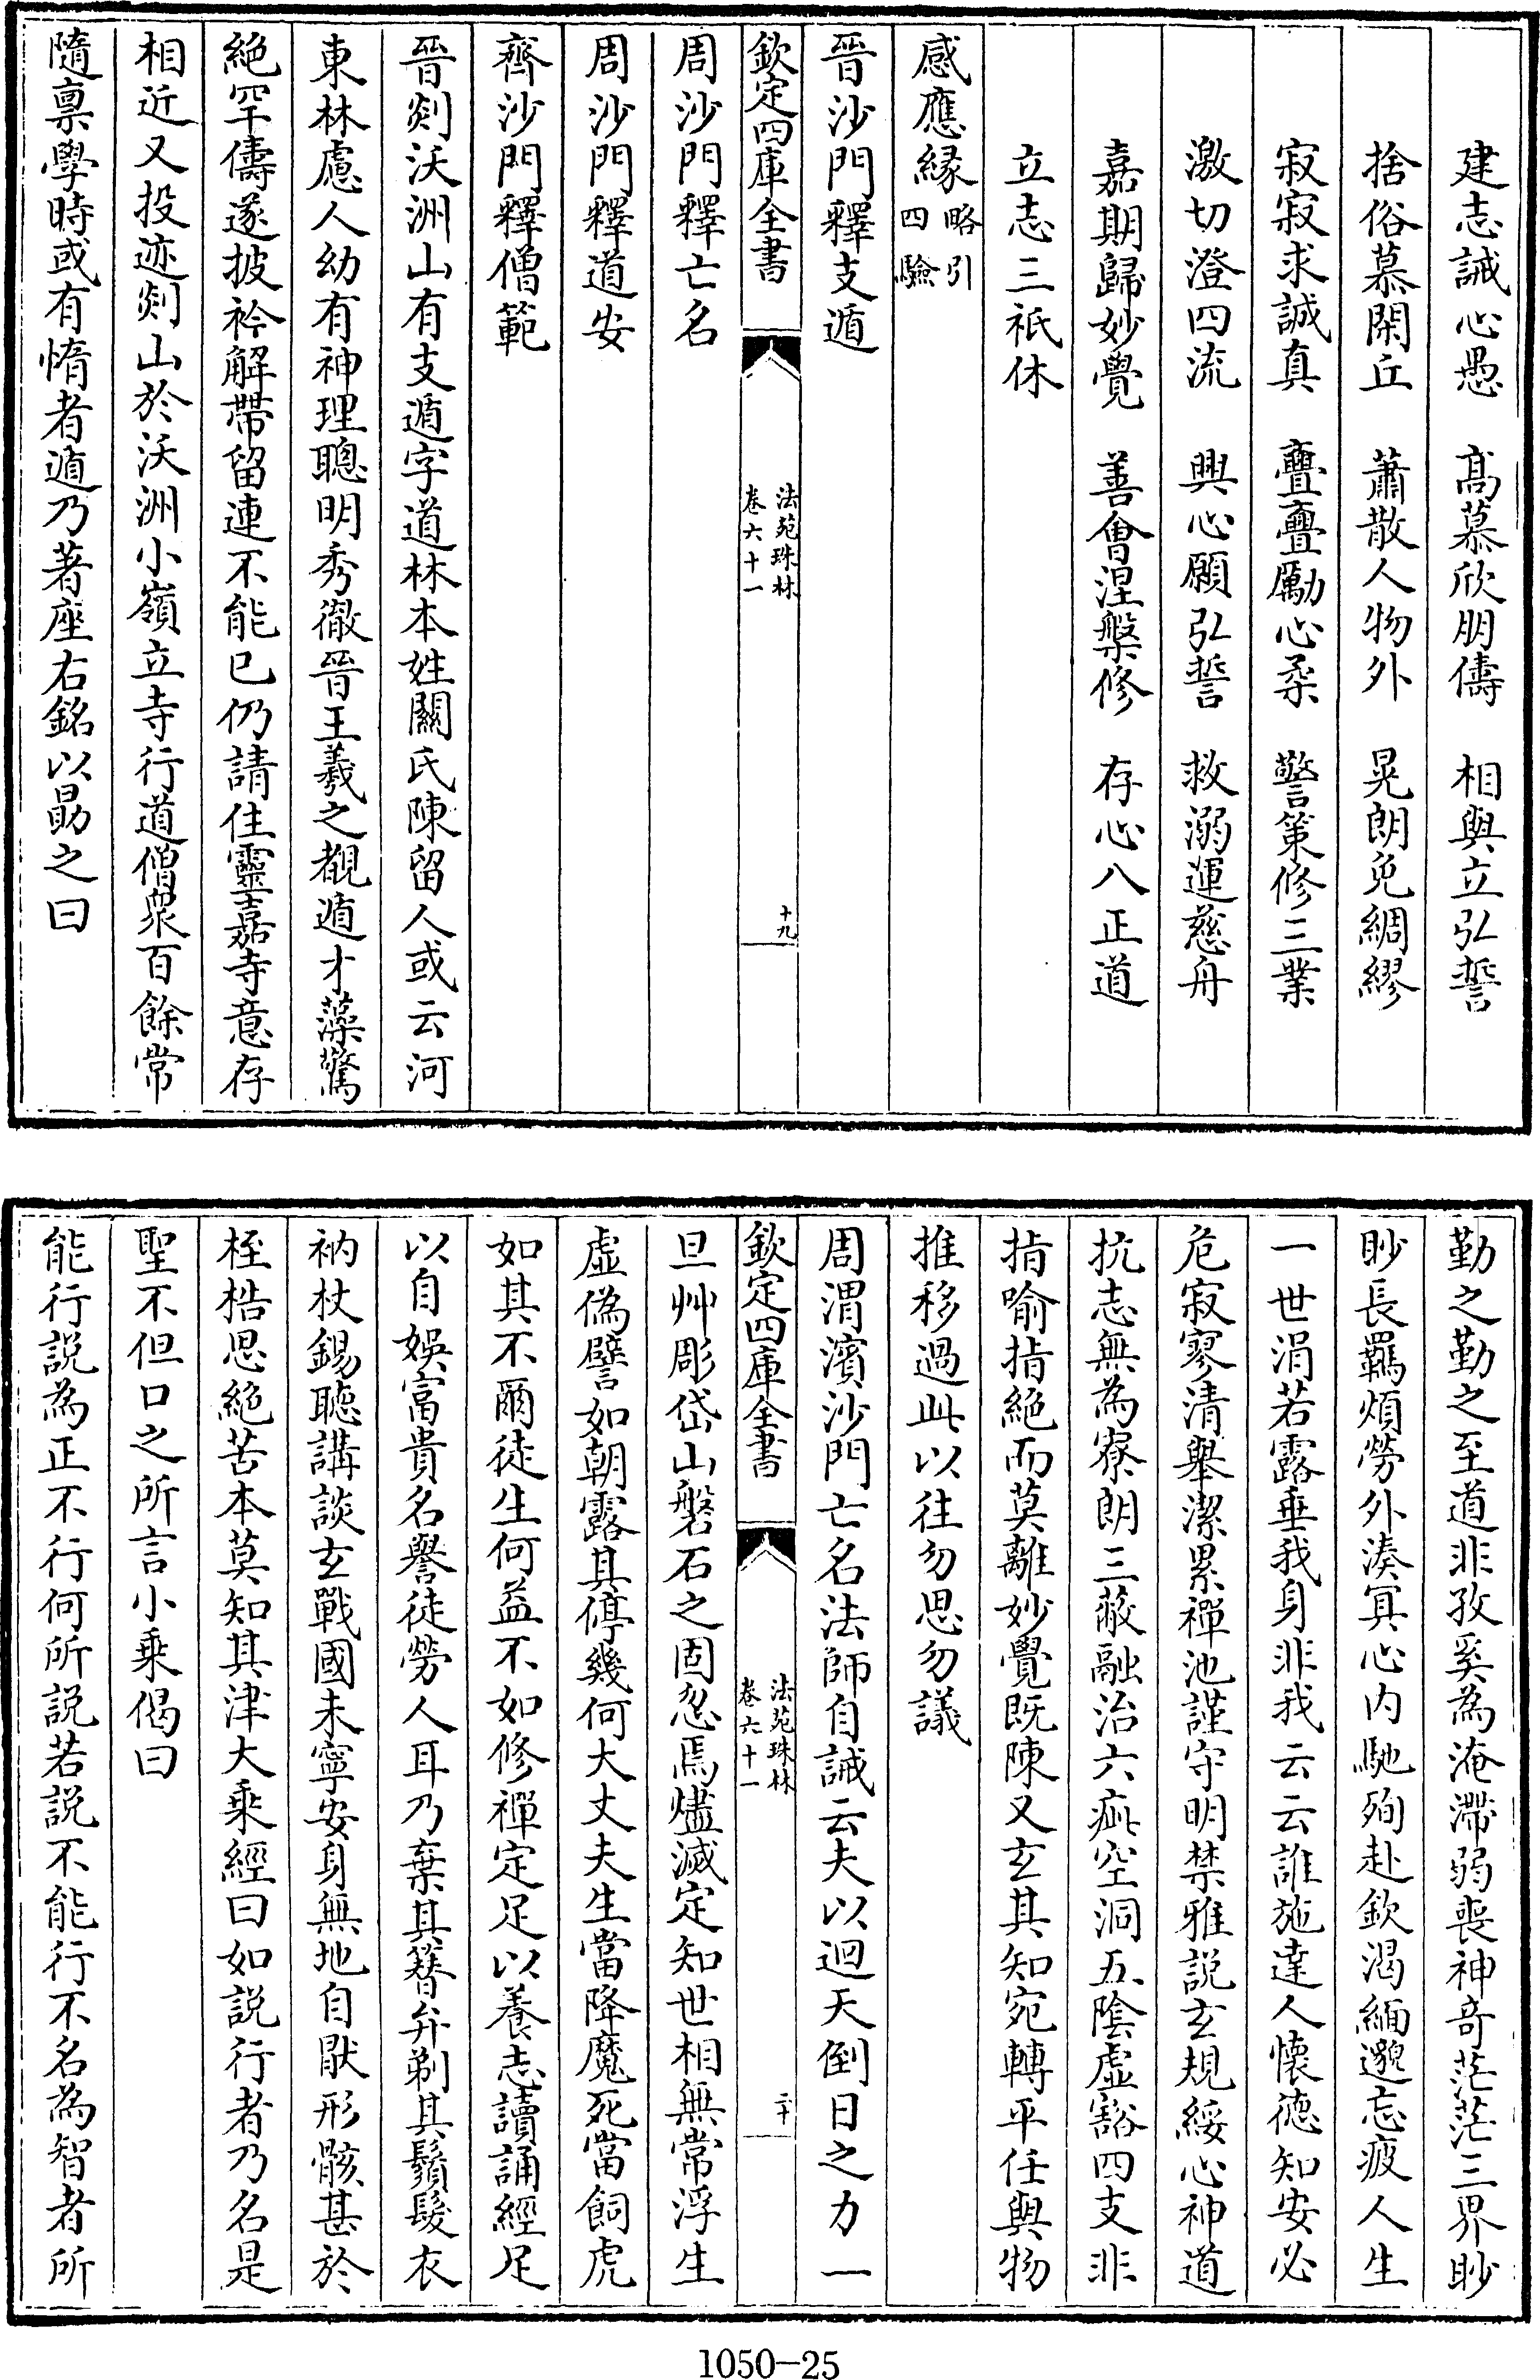 建志誡心愚　髙慕欣朋儔　相與立弘誓
捨俗慕閑丘　蕭散人物外　晃朗免綢繆
寂寂求誠真　亹亹勵心柔　警策修三業
激切澄四流　興心願弘誓　救溺運慈舟
嘉期歸妙覺　善會涅槃修　存心八正道
立志三祇休
感應縁略引四驗
晉沙門釋支遁
欽定四庫全書
法苑珠林
卷六十一
十九
周沙門釋亡名
周沙門釋道安
齊沙門釋僧範
晉剡沃洲山有支遁字道林本姓關氏陳留人或云河
東林慮人幼有神理聰明秀徹晉王羲之覩遁才藻驚
絶罕儔遂披衿解帶留連不能已仍請住靈嘉寺意存
相近又投迹剡山於沃洲小嶺立寺行道僧衆百餘常
隨禀學時或有惰者遁乃著座右銘以勗之曰
勤之勤之至道非孜奚為淹滯弱喪神奇茫茫三界眇
眇長羈煩勞外湊冥心内馳殉赴欽渇緬邈忘疲人生
一世涓若露垂我身非我云云誰施達人懐徳知安必
危寂寥清舉潔累禪池謹守明禁雅説玄規綏心神道
抗志無為寮朗三蔽融治六疵空洞五陰虚豁四支非
指喻指絶而莫離妙覺既陳又玄其知宛轉平任與物
推移過此以往勿思勿議
周渭濱沙門亡名法師自誡云夫以迴天倒日之力一
欽定四庫全書
法苑珠林
卷六十一
二十
旦艸彫岱山磐石之固忽焉燼滅定知世相無常浮生
虚偽譬如朝露其停幾何大丈夫生當降魔死當飼虎
如其不爾徒生何益不如修禪定足以養志讀誦經足
以自娯富貴名譽徒勞人耳乃棄其簮弁剃其鬚髮衣
衲杖錫聽講談玄戰國未寧安身無地自厭形骸甚於
桎梏思絶苦本莫知其津大乗經曰如説行者乃名是
聖不但口之所言小乗偈曰
能行説為正不行何所説若説不能行不名為智者所
1050-25